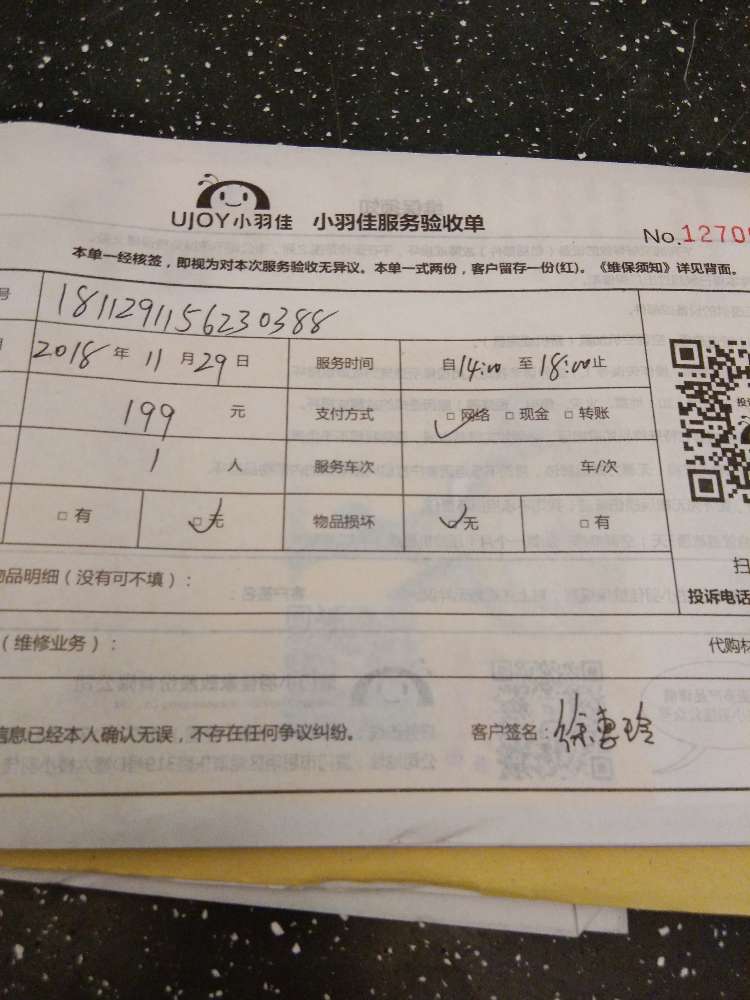 UJOY小羽佳 小羽佳服务验收单
No.1270
本单一经核签，即视为对本次服务验收无异议。本单一式两份，客户留存一份(红)。《维保须知》详见背面。
号 1811291156230388
2018 年 11 月 29 日 服务时间 自14:00 至 18:00止
199 元 支付方式 □ 网络 □ 现金 □ 转账
1 人 服务车次 车/次
□ 有 □ 无 物品损坏 □ 无 □ 有
扫
物品明细（没有可不填）：
投诉电话
（维修业务）：
代购材
信息已经本人确认无误，不存在任何争议纠纷。 客户签名：徐惠玲